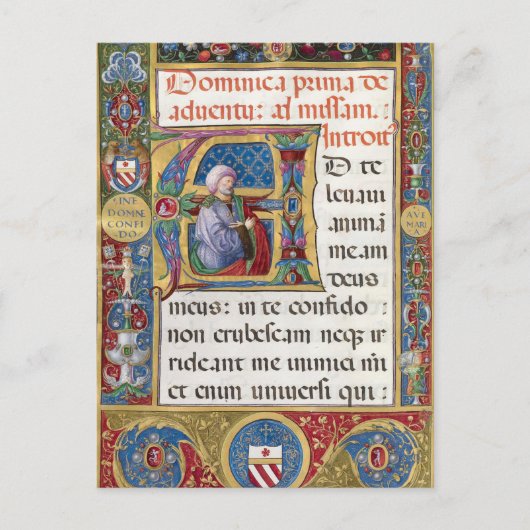 Dominica prima de
aduentu: ad missam.
Introit
A
D te
leuaui
animā
meam
deus
meus: in te confido
non erubescam neqȝ ir
rideant me inimici mī
et enim uniuersi qui:
IN E
DOMINE
CONFI
DO
AVE
MARI
A